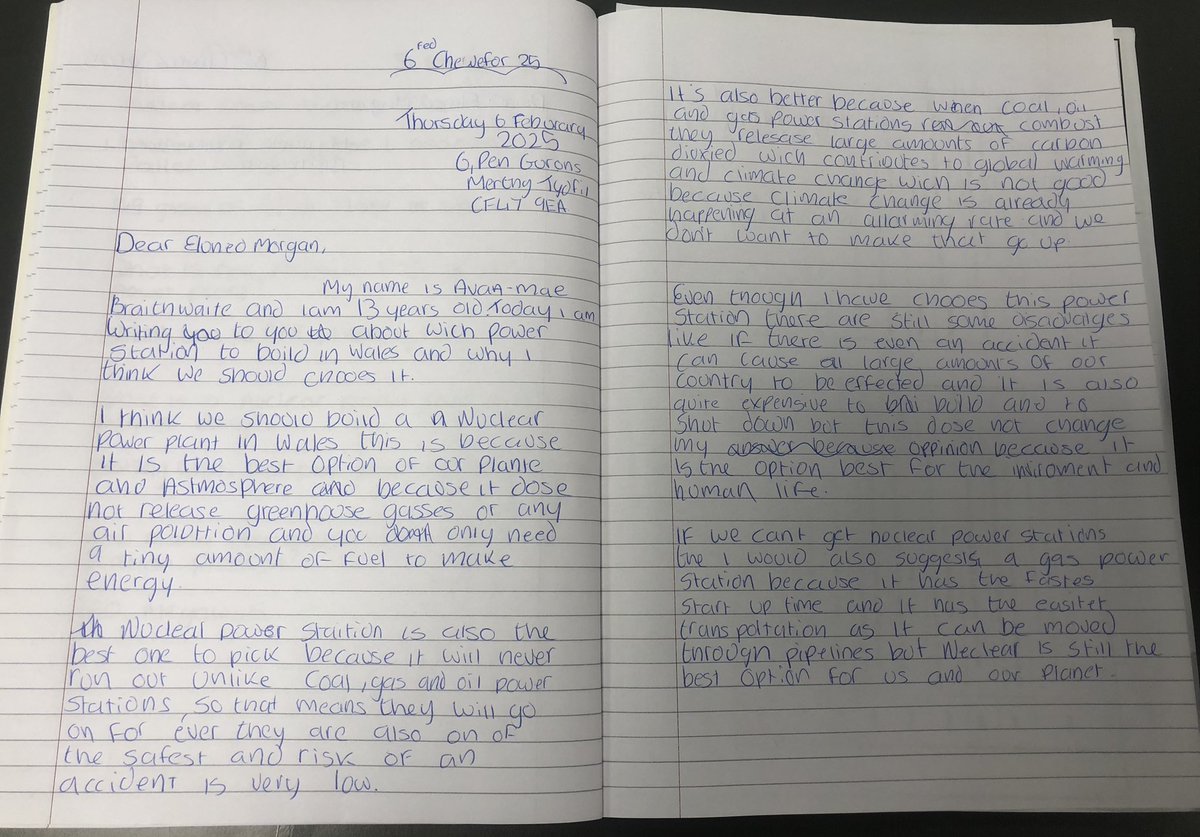 6 Fed Chewefor 25
Thursday 6 Feburary
2025
6, Pen Gorons
Merthy Tydfil
CF47 9EA
Dear Eloned Morgan,
My name is Avaa-mae
Braithwaite and I am 13 years old. Today i am
writing you to you about wich power
station to boild in Wales and why I
think we should chooes it.
I think we should boild a a Nuclear
power plant in Wales this is because
it is the best option of our plante
and Astmosphere and because it dose
not release greenhouse gasses or any
air polottion and you only need
a tiny amount of fuel to make
energy.
th Nucleal power Staition is also the
best one to pick because it will never
run out unlike coal, gas and oil power
stations, so that means they will go
on for ever they are also on of
the safest and risk of an
accident is very low.
It's also better because when coal, oil
and gas power stations run out combust
they relescase large amounts of carbon
dioxied wich contributes to global warming
and climate change wich is not good
because climate change is already
happening at an allarming rate and we
don't want to make that go up
Even though I have chooes this power
station there are still some disadvalges
like if there is even an accident it
can cause al large amounts of our
country to be effected and it is also
quite expensive to brai build and to
shut down but this dose not change
my answer because oppinion because it
is the option best for the inviroment and
human life.
If we cant get noclear power stations
the I would also suggests a gas power
station because it has the fastes
start up time and it has the easiter
transpoltation as it can be moved
through pipelines but Neclear is still the
best option for us and our planet.